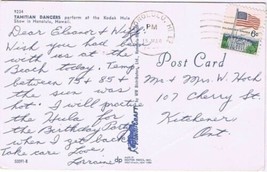 9224
TAHITIAN DANCERS perform at the Kodak Hula
Show in Honolulu, Hawaii.
Dear Eleanor &
Wish you had been
with us at the
Beach today. Temp
between 75 & 85 &
the sun was
hot. I will practice
the Hula for
the Birthday Party
when I get back
Take care Love,
Lorraine
HONOLULU, HI
PM
6c
Post Card
Mr & Mrs W. Hoch
107 Cherry St.
Kitchener
Ont.